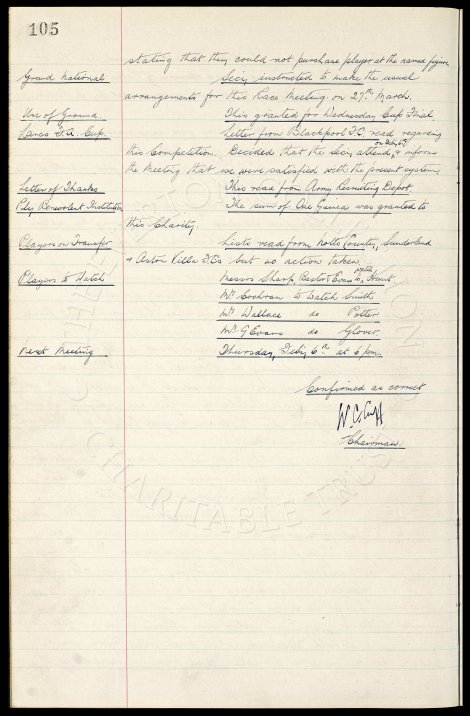 105
stating that they could not purchase player at the named figure.
Grand National Secy instructed to make the usual
arrangements for this Race Meeting on 27th March.
Use of Ground. This granted for Wednesday Cup Trial.
Lancs F.A. Cup. Letter from Blackpool F.C. read regarding
this Competition. Decided that the Secy attend, & inform
the Meeting that we were satisfied with the present system.
Letter of Thanks This read from Army Recruiting Depot.
Benevolent Institution The sum of One Guinea was granted to
this Charity.
Players on Transfer Lists read from Notts County, Sunderland
& Aston Villa F.Cs but no action taken.
Players to Watch Messrs Sharp, Baxter & Evans to watch Hunt.
Mr Cochran to Watch Smith
Mr Wallace do Potter
Mr G Evans do Glover.
Next Meeting Thursday, Feby 6th at 6 pm.
Confirmed as correct
W. C. Cuff
Chairman.
CHARITABLE TRUST